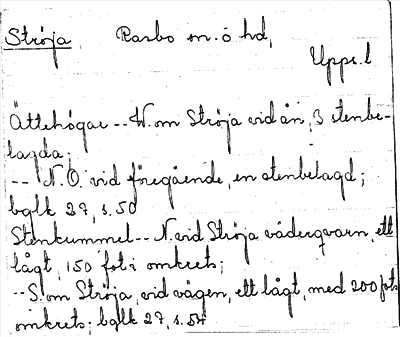 Ströja, Rasbo sn. o hd,
Upps. l
Ättehögar -- W. om Ströja vid ån, 3 stenbe-
lagda;
-- N.O. vid föregående, en stenbelagd;
bglk 27, s. 50
Stenkummel -- N. vid Ströja väderqvarn, ett
lågt, 150 fot i omkrets;
-- S. om Ströja, vid vägen, ett lågt, med 200 fots
omkrets; bglk 27, s. 54